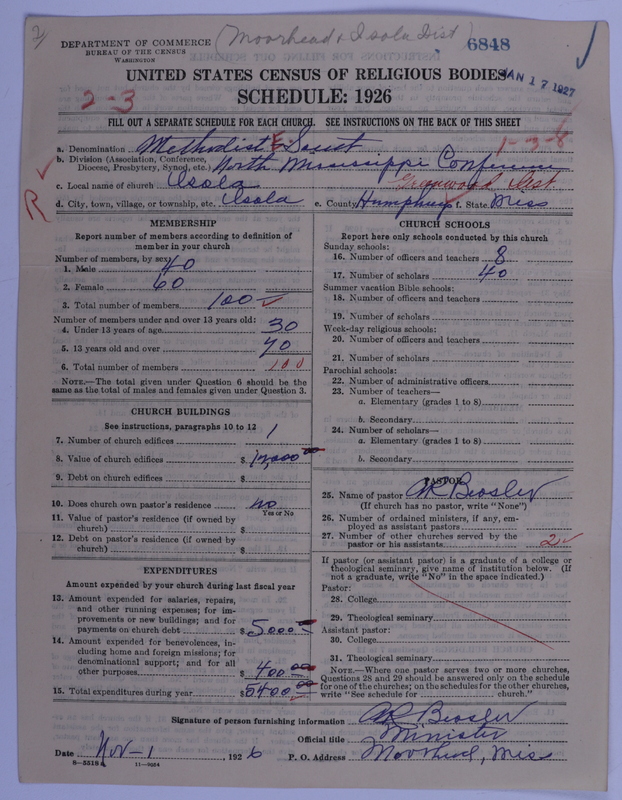 (Moorhead & Isola Dist)
DEPARTMENT OF COMMERCE
BUREAU OF THE CENSUS
WASHINGTON
6848
JAN 17 1927
UNITED STATES CENSUS OF RELIGIOUS BODIES
SCHEDULE: 1926
2-3
FILL OUT A SEPARATE SCHEDULE FOR EACH CHURCH. SEE INSTRUCTIONS ON THE BACK OF THIS SHEET
1-3-8
a. Denomination Methodist E. South
b. Division (Association, Conference, Diocese, Presbytery, Synod, etc.) North Mississippi Conference
Greenwood Dist
c. Local name of church Isola
d. City, town, village, or township, etc. Isola e. County Humphreys f. State Miss
R
MEMBERSHIP
Report number of members according to definition of
member in your church
Number of members, by sex:
1. Male 40
2. Female 60
3. Total number of members 100
Number of members under and over 13 years old:
4. Under 13 years of age 30
5. 13 years old and over 70
6. Total number of members 100
NOTE.—The total given under Question 6 should be the
same as the total of males and females given under Question 3.
CHURCH BUILDINGS
See instructions, paragraphs 10 to 12
7. Number of church edifices 1
8. Value of church edifices $ 12,000 00
9. Debt on church edifices $
10. Does church own pastor's residence No
Yes or No
11. Value of pastor's residence (if owned by
church) $
12. Debt on pastor's residence (if owned by
church) $
EXPENDITURES
Amount expended by your church during last fiscal year
13. Amount expended for salaries, repairs,
and other running expenses; for im-
provements or new buildings; and for
payments on church debt $ 5000
14. Amount expended for benevolences, in-
cluding home and foreign missions; for
denominational support; and for all
other purposes $ 400.00
15. Total expenditures during year $ 5400.00
CHURCH SCHOOLS
Report here only schools conducted by this church
Sunday schools:
16. Number of officers and teachers 8
17. Number of scholars 40
Summer vacation Bible schools:
18. Number of officers and teachers
19. Number of scholars
Week-day religious schools:
20. Number of officers and teachers
21. Number of scholars
Parochial schools:
22. Number of administrative officers
23. Number of teachers—
a. Elementary (grades 1 to 8)
b. Secondary
24. Number of scholars—
a. Elementary (grades 1 to 8)
b. Secondary
PASTOR
25. Name of pastor Beasley
(If church has no pastor, write "None")
26. Number of ordained ministers, if any, em-
ployed as assistant pastors
27. Number of other churches served by the
pastor or his assistants 2
If pastor (or assistant pastor) is a graduate of a college or
theological seminary, give name of institution below. (If
not a graduate, write "No" in the space indicated.)
Pastor:
28. College
29. Theological seminary
Assistant pastor:
30. College
31. Theological seminary
NOTE.—Where one pastor serves two or more churches,
Questions 28 and 29 should be answered only on the schedule
for one of the churches; on the schedules for the other churches,
write "See schedule for church."
Signature of person furnishing information Beasley
Official title Minister
Date Nov-1, 1926 P. O. Address Moorhead, Mis
8-5518 11-9034